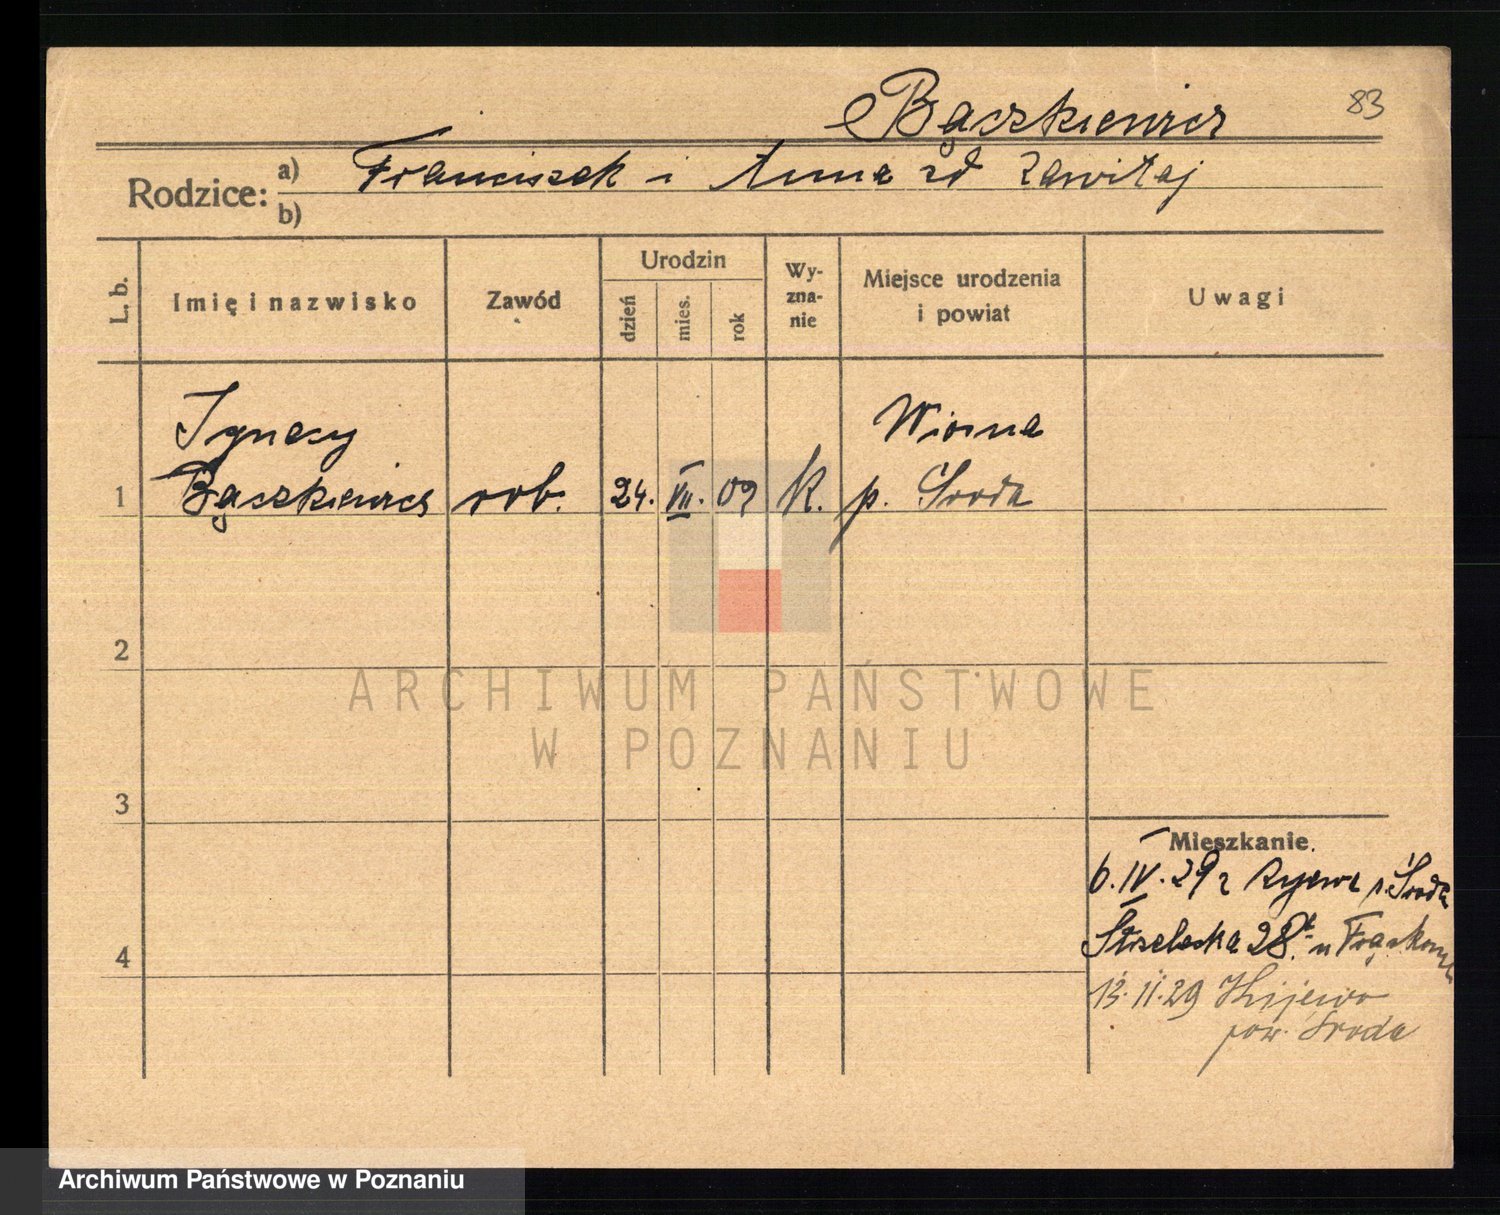 83
Bączkiewicz
Rodzice: a) Franciszek i Anna zd Zawitaj
b)
L. b.
Imię i nazwisko
Zawód
Urodzin
dzień
mies.
rok
Wy-
zna-
nie
Miejsce urodzenia
i powiat
Uwagi
Ignacy
Bączkiewicz
1
rob.
24. VII. 09
K.
p. Środa
2
3
4
Mieszkanie.
6. IV. 29 z p. Środa
Strzelecka 28 u
13. II. 29 Kijewo
pow. Środa
ARCHIWUM PAŃSTWOWE
W POZNANIU
Archiwum Państwowe w Poznaniu